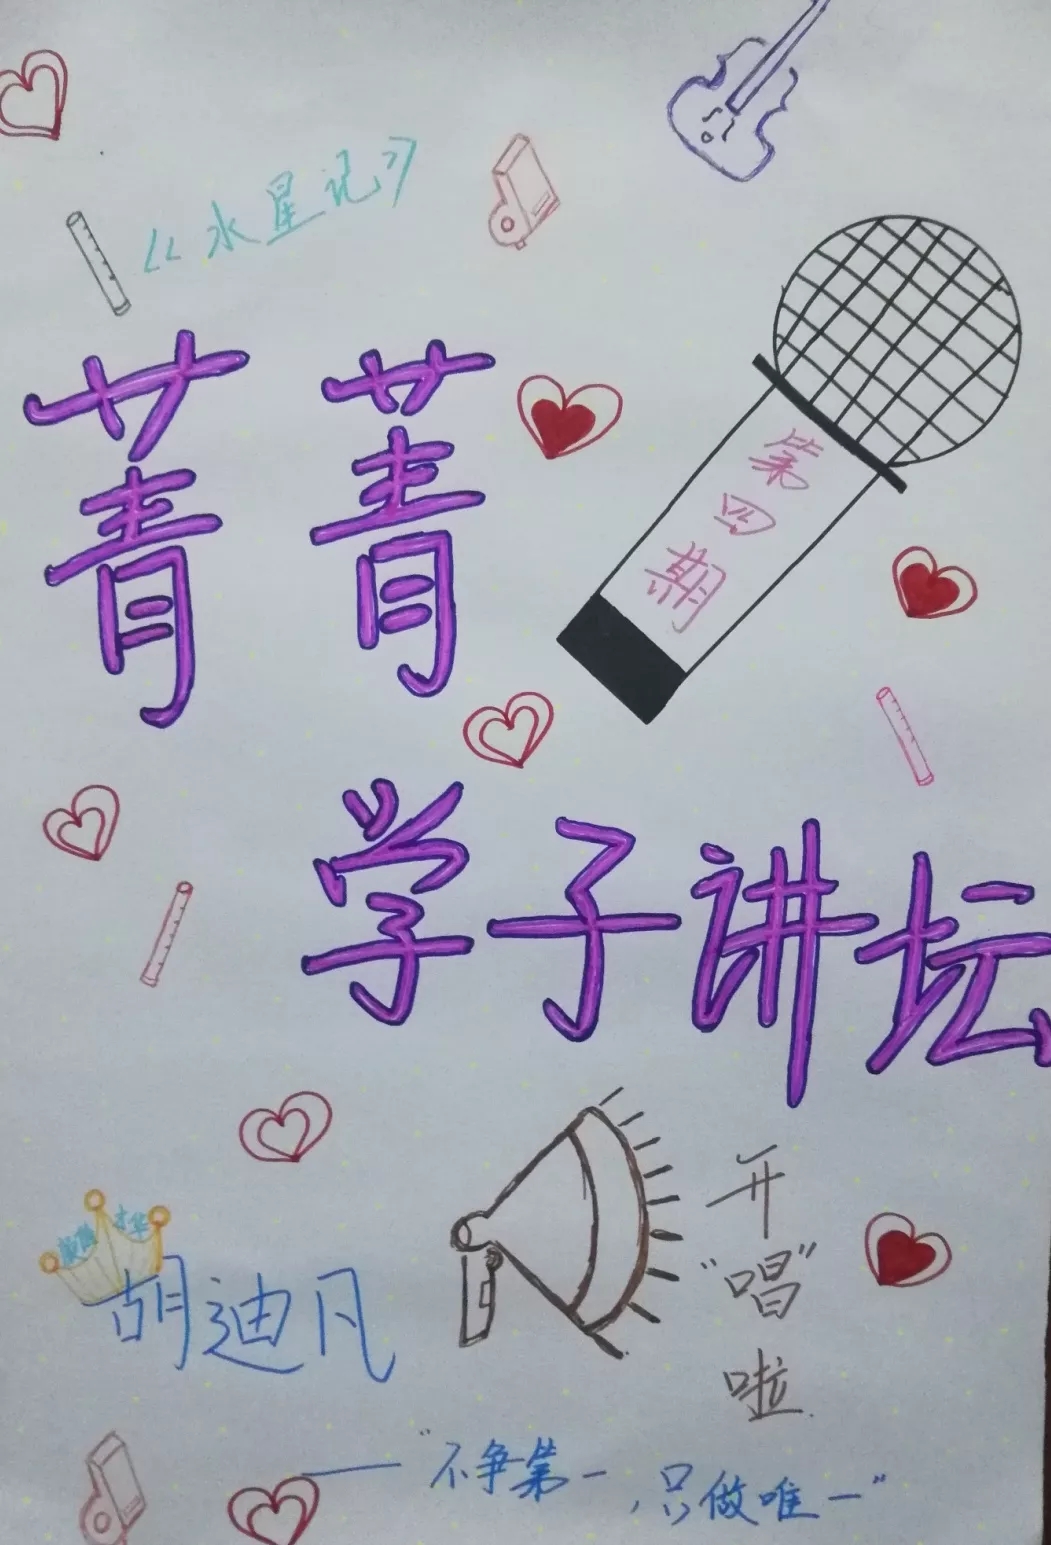 《水星记》
菁菁
第四期
学子讲坛
开
"唱"
啦
才华
胡迪凡
——"不争第一,只做唯一"